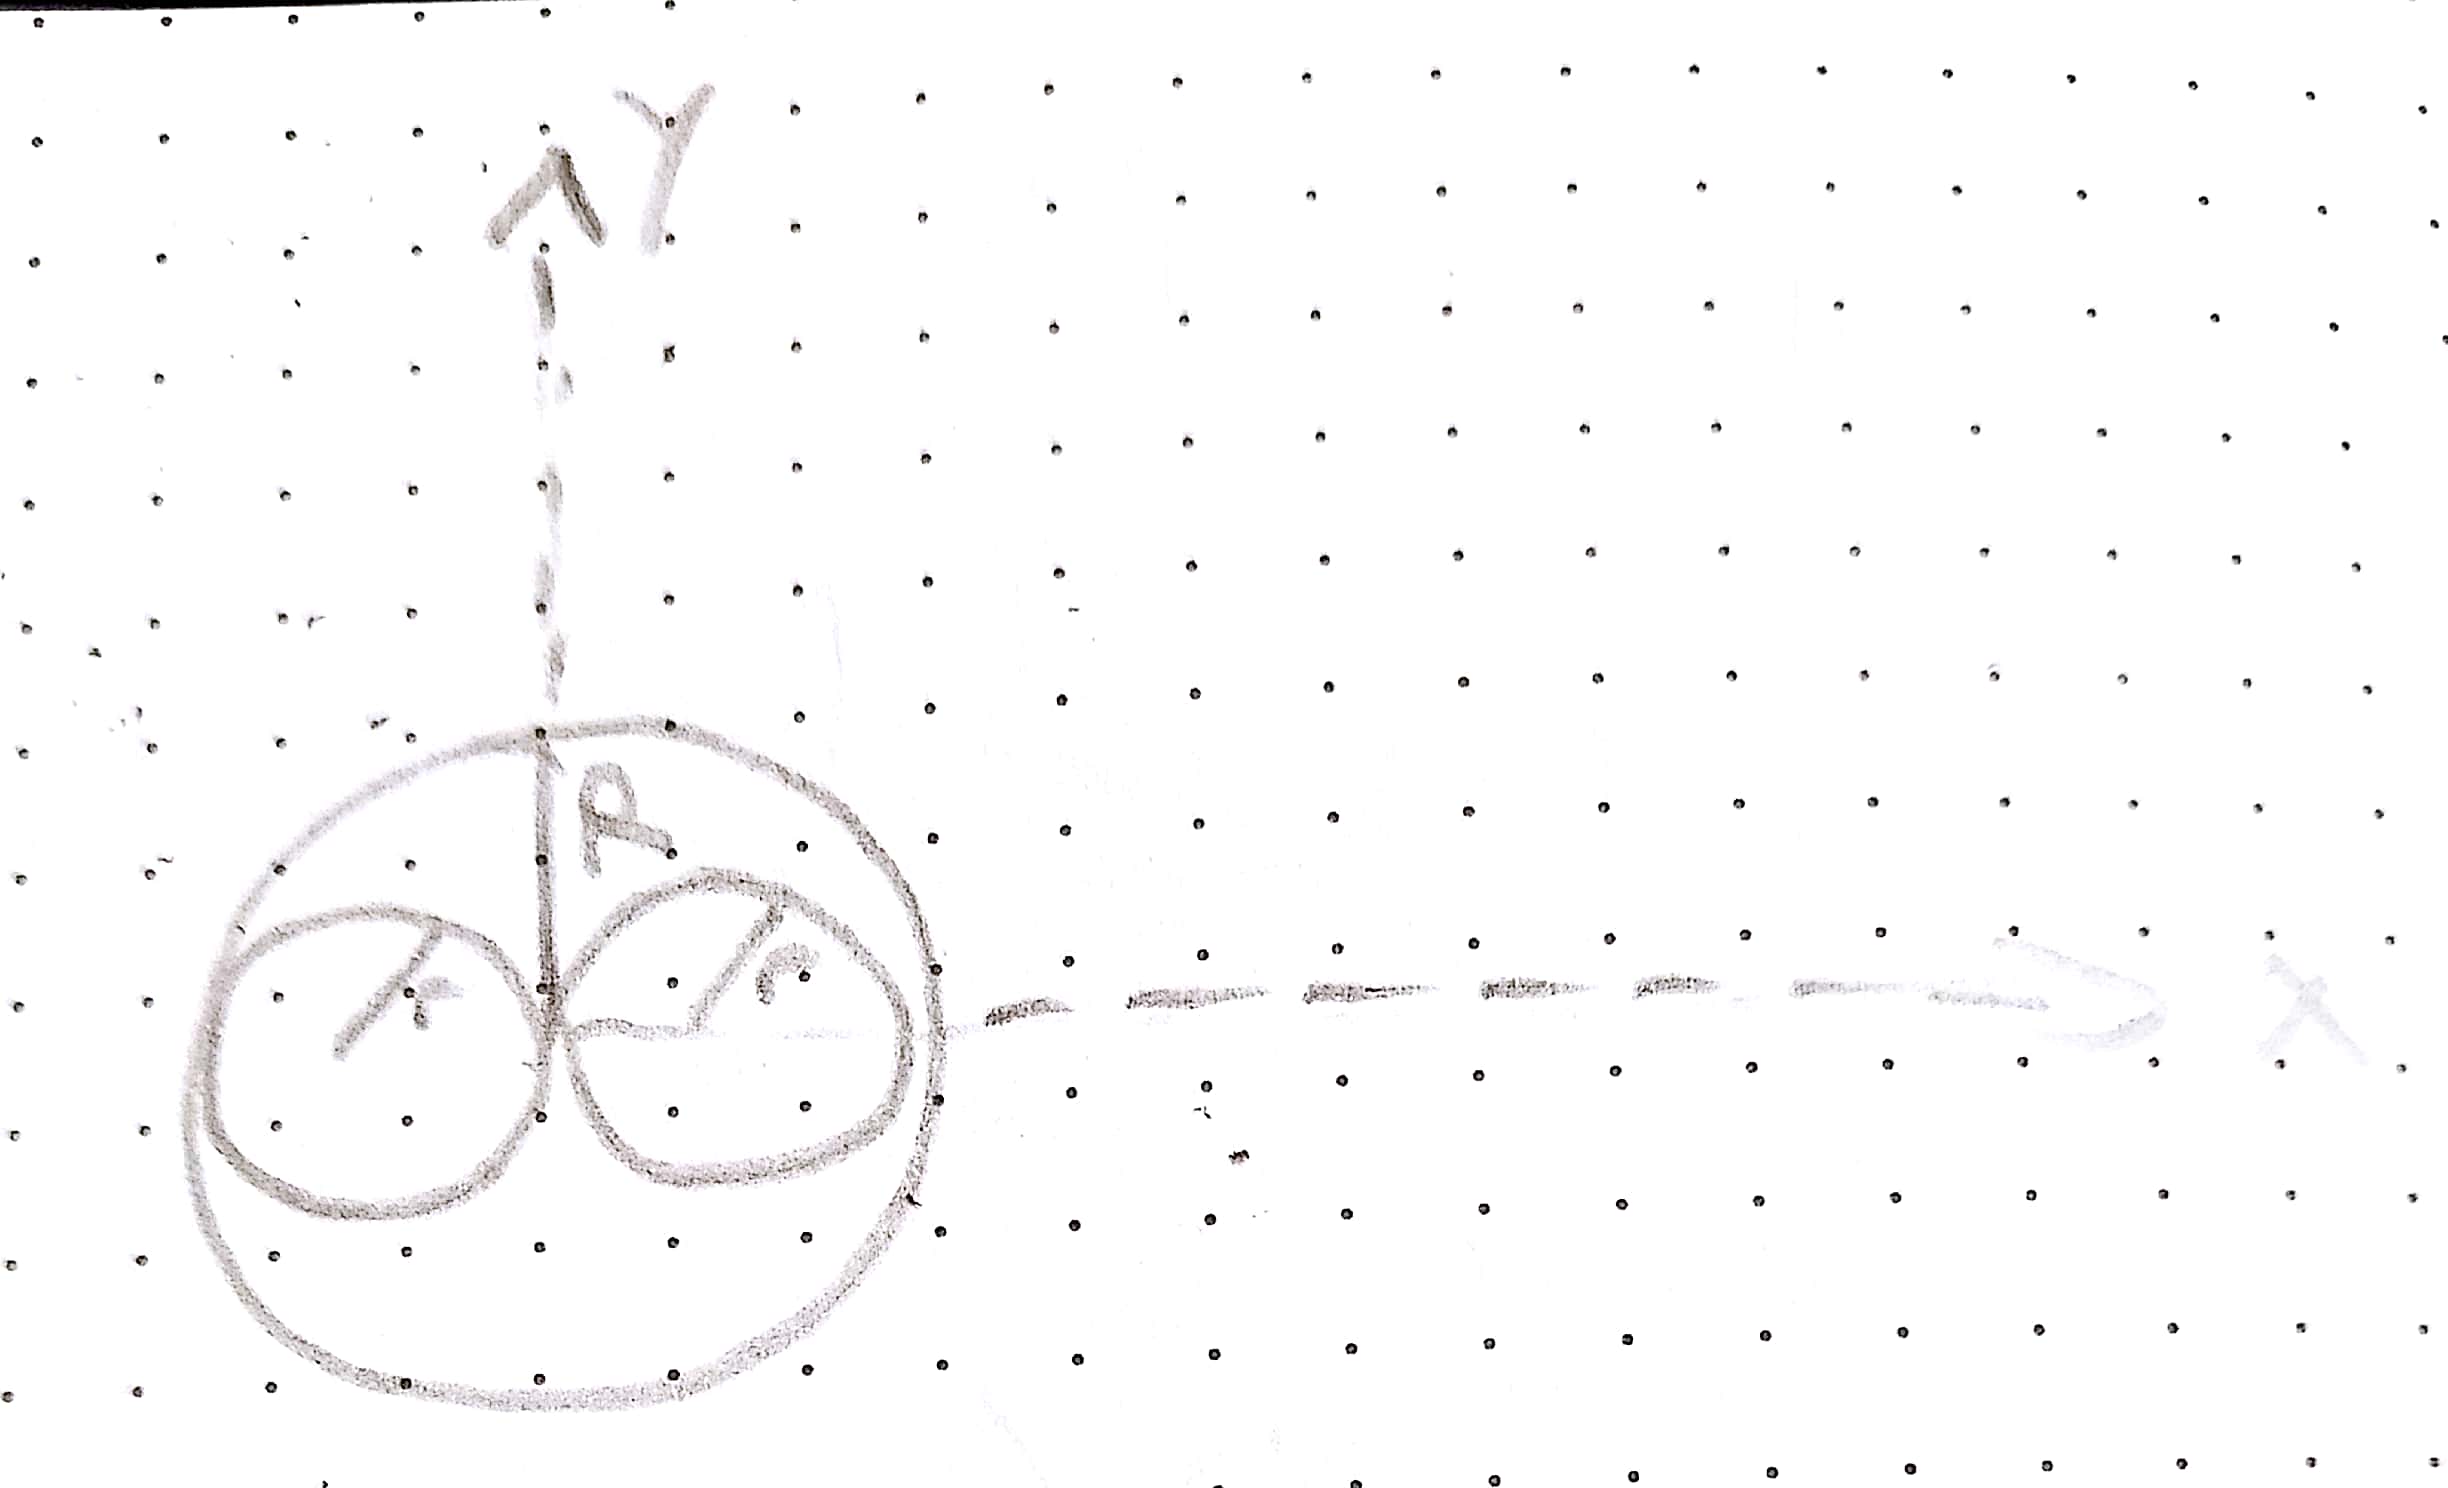 Y
R
r r
X